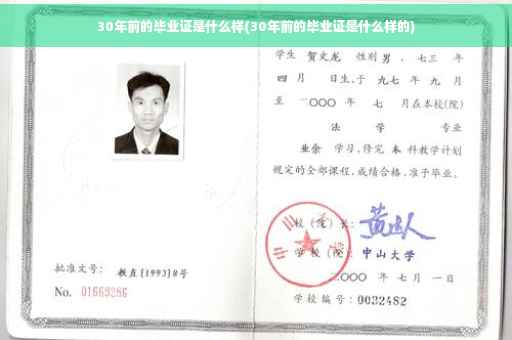 30年前的毕业证是什么样(30年前的毕业证是什么样的)
学生 贺文龙 性别男，七三 年
四月 日生,于 九七 年 九 月
至 二〇〇〇 年 七 月在本校(院)
法 学 专业
业余 学习,修完 本 科教学计划
规定的全部课程,成绩合格,准予毕业。
校(院)长:
学校(院): 中山大学
二〇〇〇 年 七 月 一 日
学校编号: 0032482
批准文号: 教直(1993)8号
No. 01669286